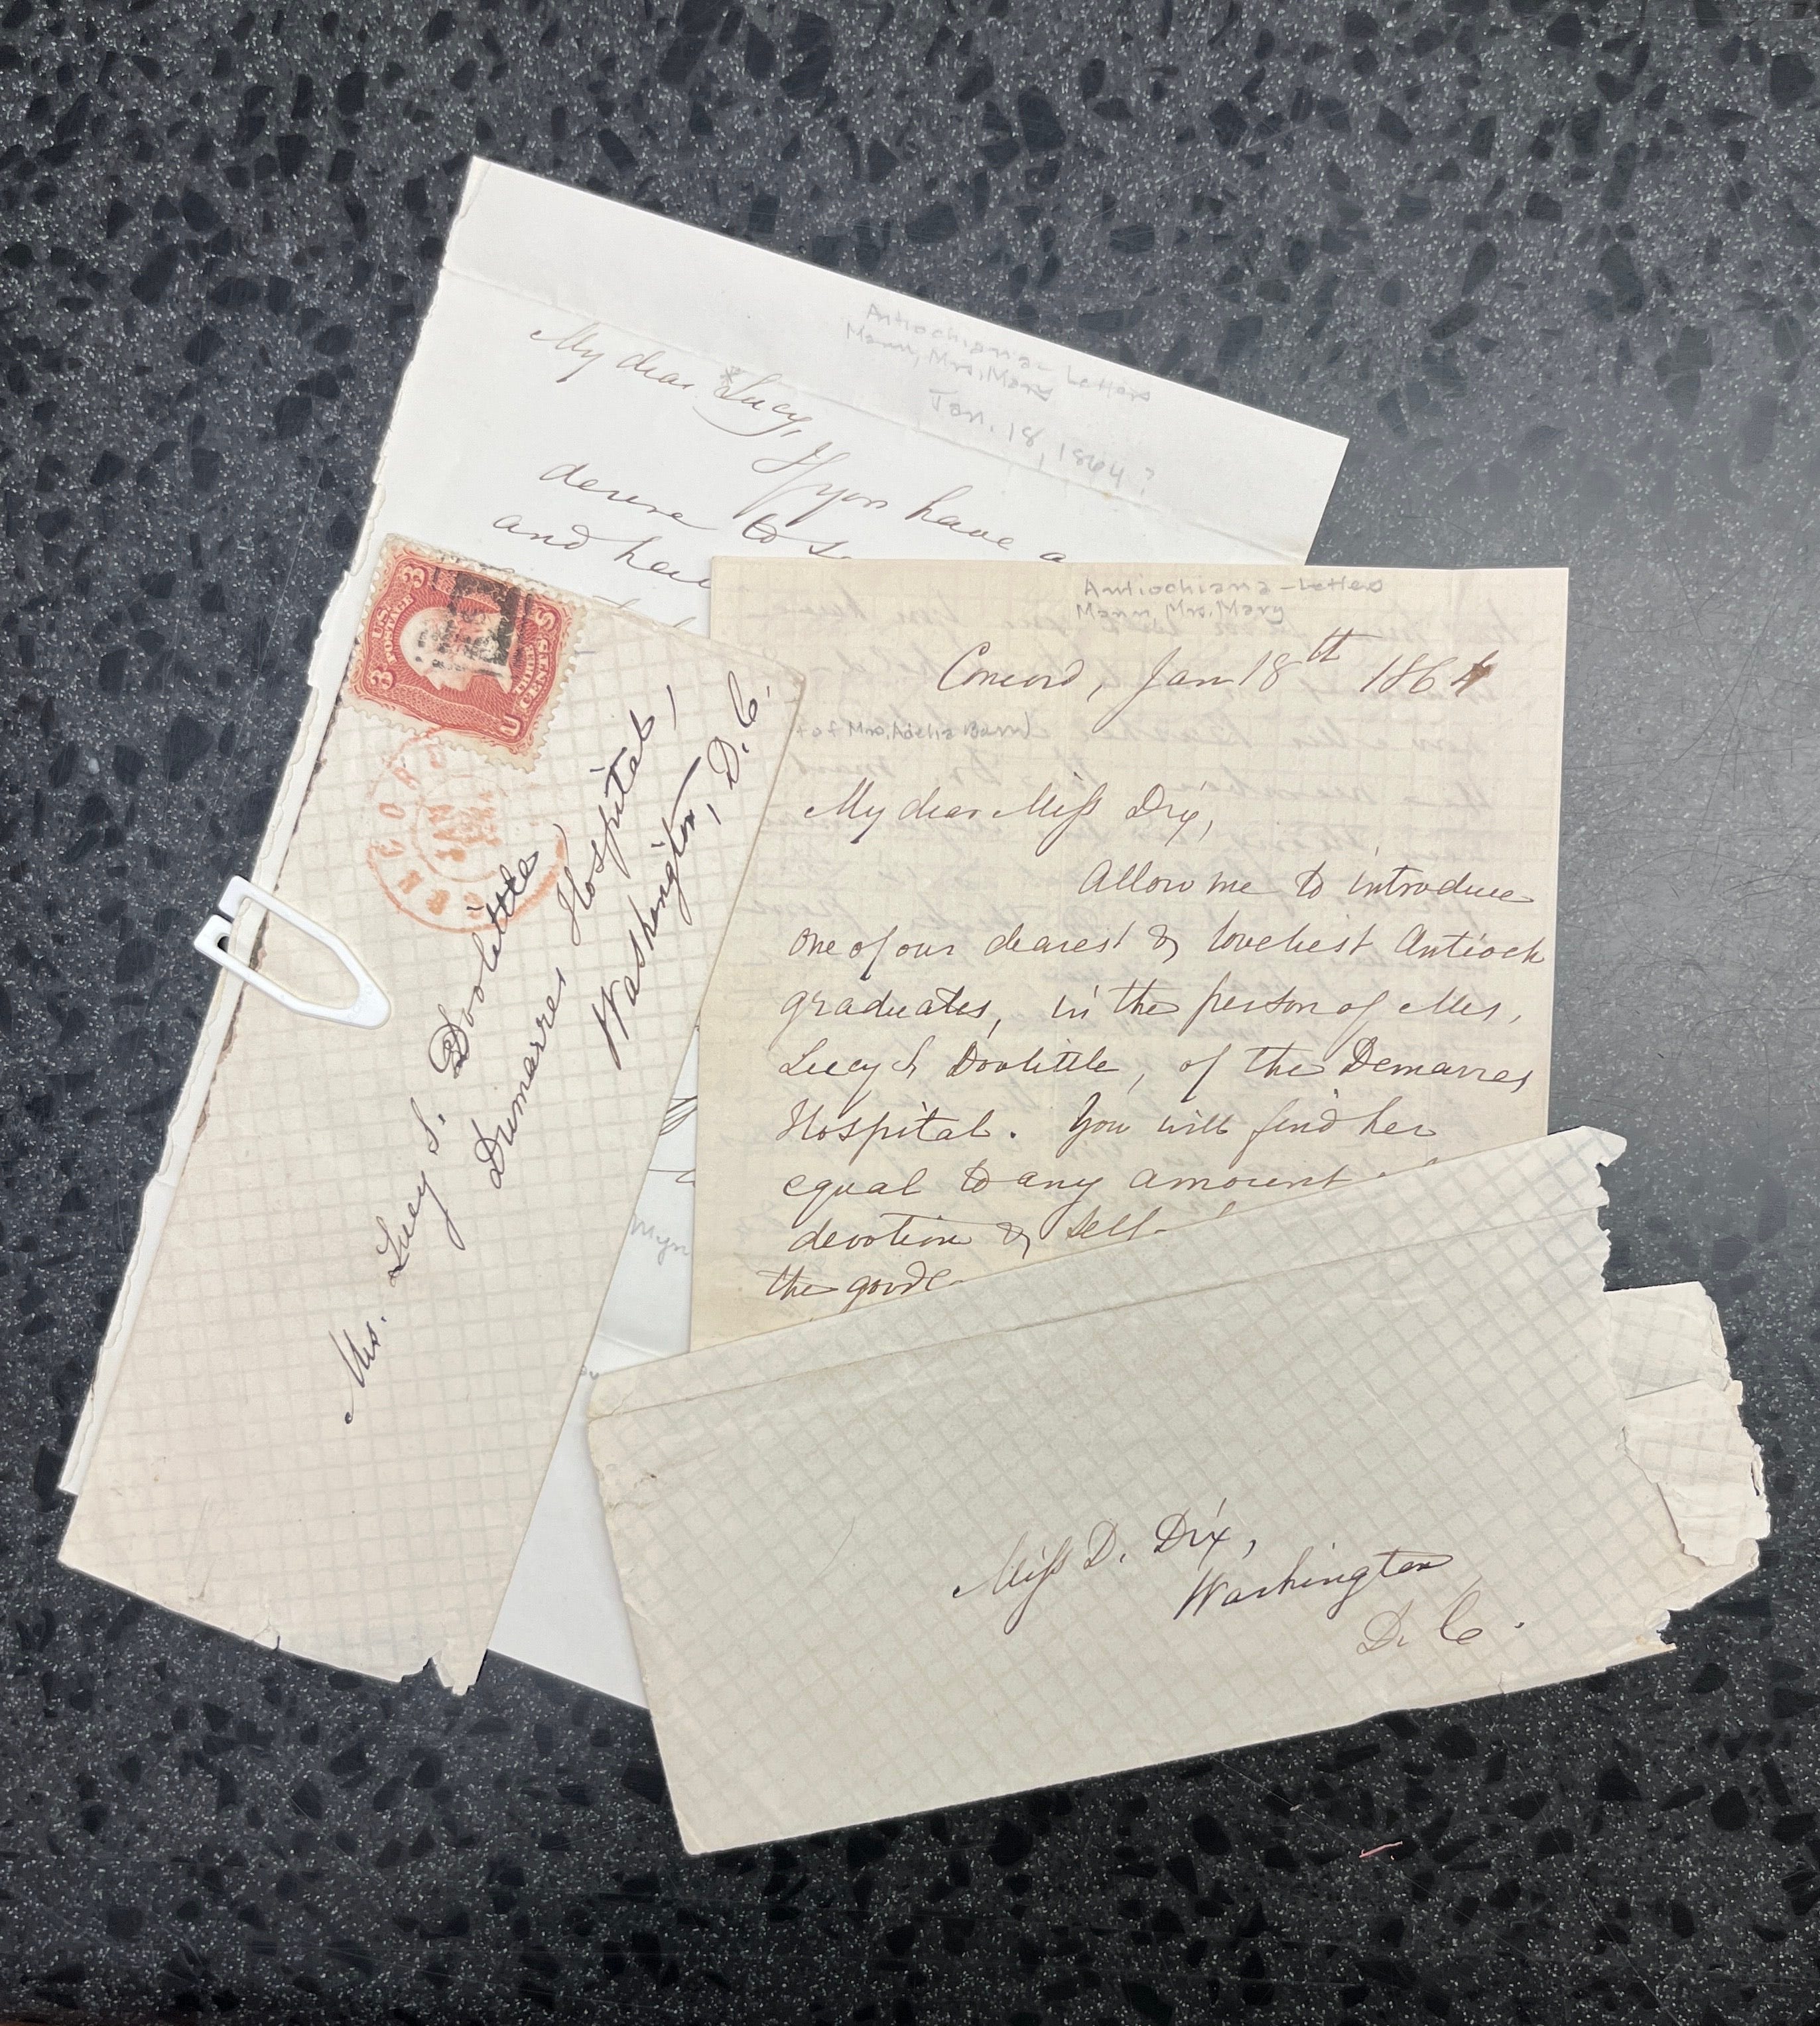 Antiochiana - Letters
Mann, Mrs. Mary
Jan. 18, 1864?
My dear *Lucy,
If you have a
desire to s
and hea
U.S. POSTAGE
3 3
THREE CENTS
U S
CONCORD
JAN
Mrs. Lucy S. Doolittle
Dumarres Hospital,
Washington, D.C.
Antiochiana - Letters
Mann, Mrs. Mary
Concord, Jan 18th 1864
t of Mrs. Adelia
My dear Miss Dix,
Allow me to introduce
one of our dearest & loveliest Antioch
graduates, in the person of Mrs.
Lucy S Doolittle, of the Demarres
Hospital. You will find her
equal to any amount
devotion & self-
the good
Miss D. Dix,
Washington
D. C.